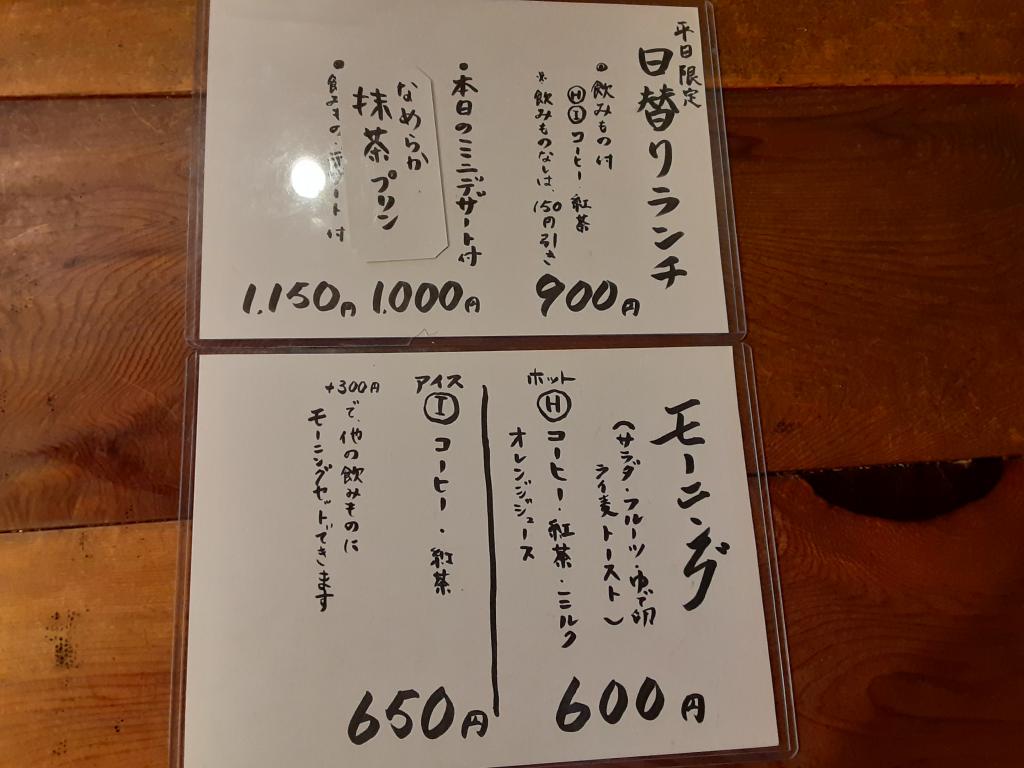 平日限定
日替りランチ
● 飲みもの付
Ⓗ Ⓘ コーヒー・紅茶
※飲みものなしは、150円引き
900円
● 本日のミニデザート付
なめらか
抹茶プリン
1.000円
● 飲みもの・ デザート付
1.150円
モーニング
(サラダ・フルーツ・ゆで卵
ライ麦トースト)
ホット
Ⓗ コーヒー・紅茶・ミルク
オレンジジュース
600円
アイス
Ⓘ コーヒー・紅茶
+300円
で、他の飲みものに
モーニングセットできます
650円